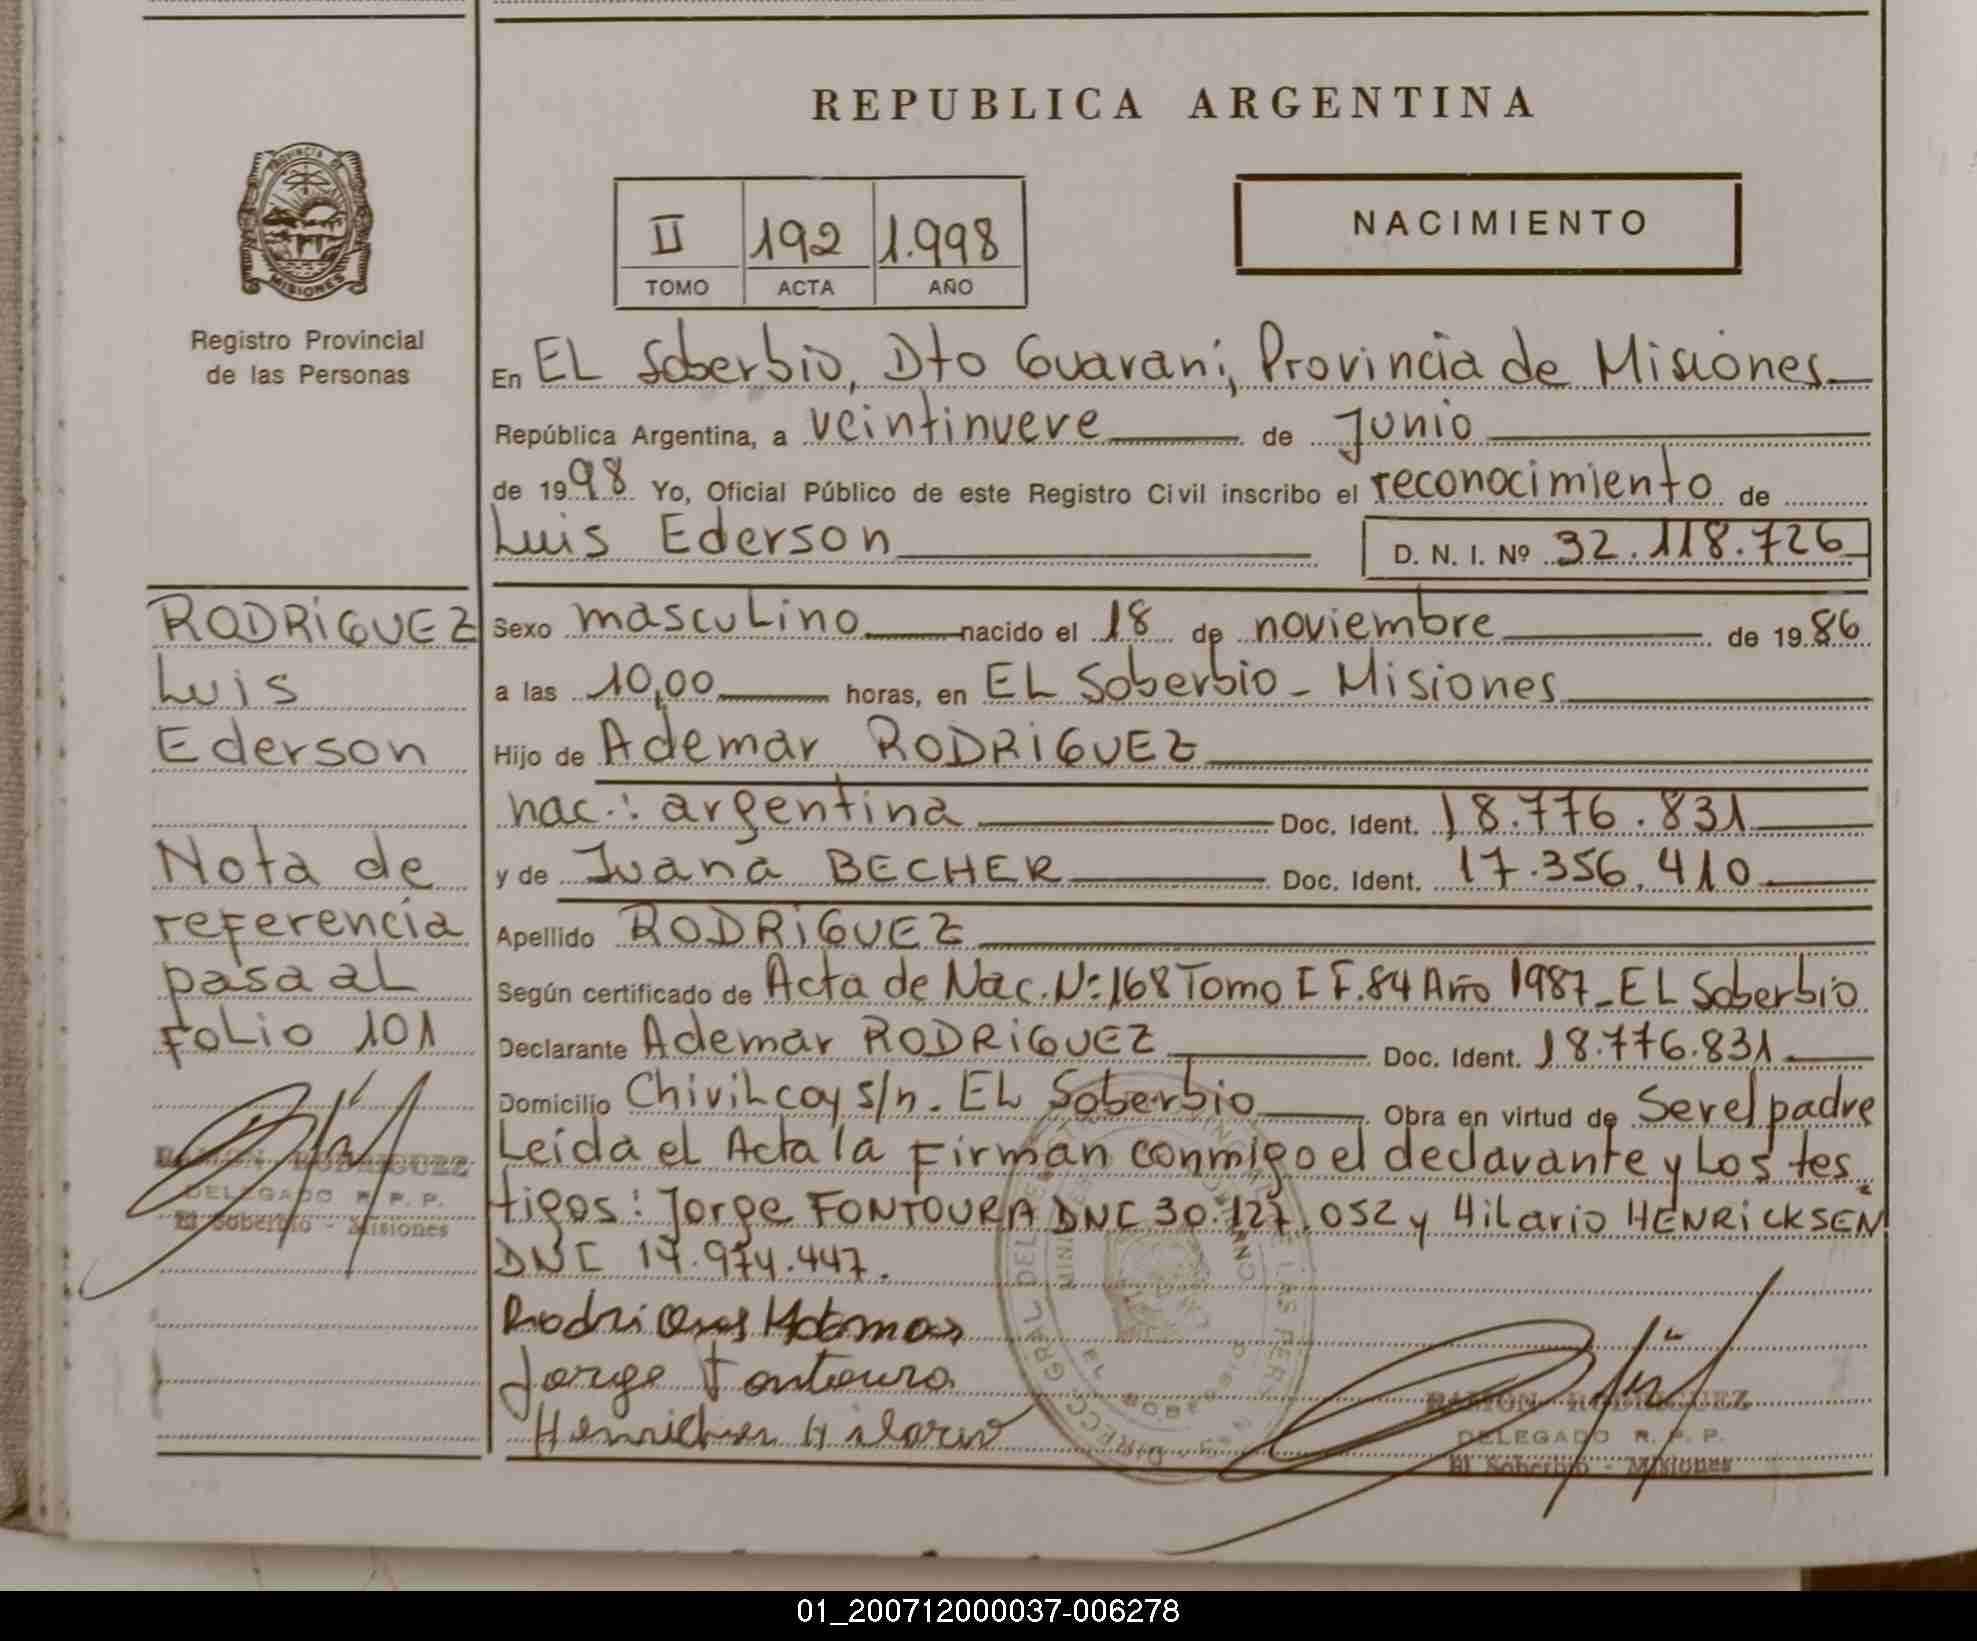 REPUBLICA ARGENTINA
PROVINCIA DE
MISIONES
Registro Provincial
de las Personas
II 192 1.998
TOMO ACTA AÑO
NACIMIENTO
En EL Soberbio, Dto Guaraní, Provincia de Misiones
República Argentina, a veintinueve de Junio
de 1998 Yo, Oficial Público de este Registro Civil inscribo el reconocimiento de
Luis Ederson
D. N. I. Nº 32.118.726
RODRIGUEZ
Luis
Ederson
Nota de
referencia
pasa al
Folio 101
RAMON RODRIGUEZ
DELEGADO R. P. P.
El Soberbio - Misiones
Sexo masculino nacido el 18 de noviembre de 1986
a las 10,00 horas, en EL Soberbio - Misiones
Hijo de Ademar RODRIGUEZ
nac.: argentina Doc. Ident. 18.776.831
y de Juana BECHER Doc. Ident. 17.356.410
Apellido RODRIGUEZ
Según certificado de Acta de Nac. Nº 168 Tomo I F.84 Año 1987 - EL Soberbio
Declarante Ademar RODRIGUEZ Doc. Ident. 18.776.831
Domicilio Chivilcoy s/n. EL Soberbio Obra en virtud de Ser el padre
Leida el Acta la Firman conmigo el declarante y Los tes
tigos: Jorge FONTOURA DNI 30.127.052 y Hilario HENRICKSEN
DNI 17.974.447.
Jorge Fontoura
Hilario
EL SOBERBIO
RAMON RODRIGUEZ
DELEGADO R. P. P.
El Soberbio - Misiones
01_200712000037-006278